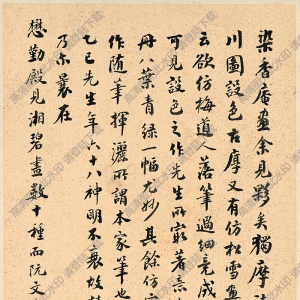 染香庵画余見夥矣獨摩
川圖設色古厚又有仿松雪畫
云欲仿梅道人落筆過細竟成
可見設色之作先生所最著意
丹八葉青綠一幅尤妙其餘仿
作隨筆揮灑所謂本家筆也
乙巳先生年六十八神明不衰
乃尔曩在
懋勤殿見湘碧畫數十種而阮文